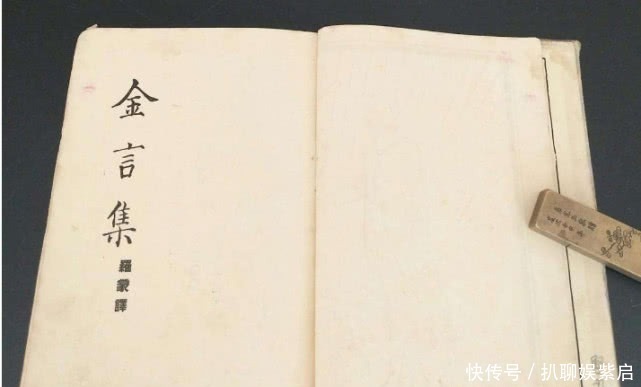 金言集
羅蒙譯
快传号／扒聊娱紫启